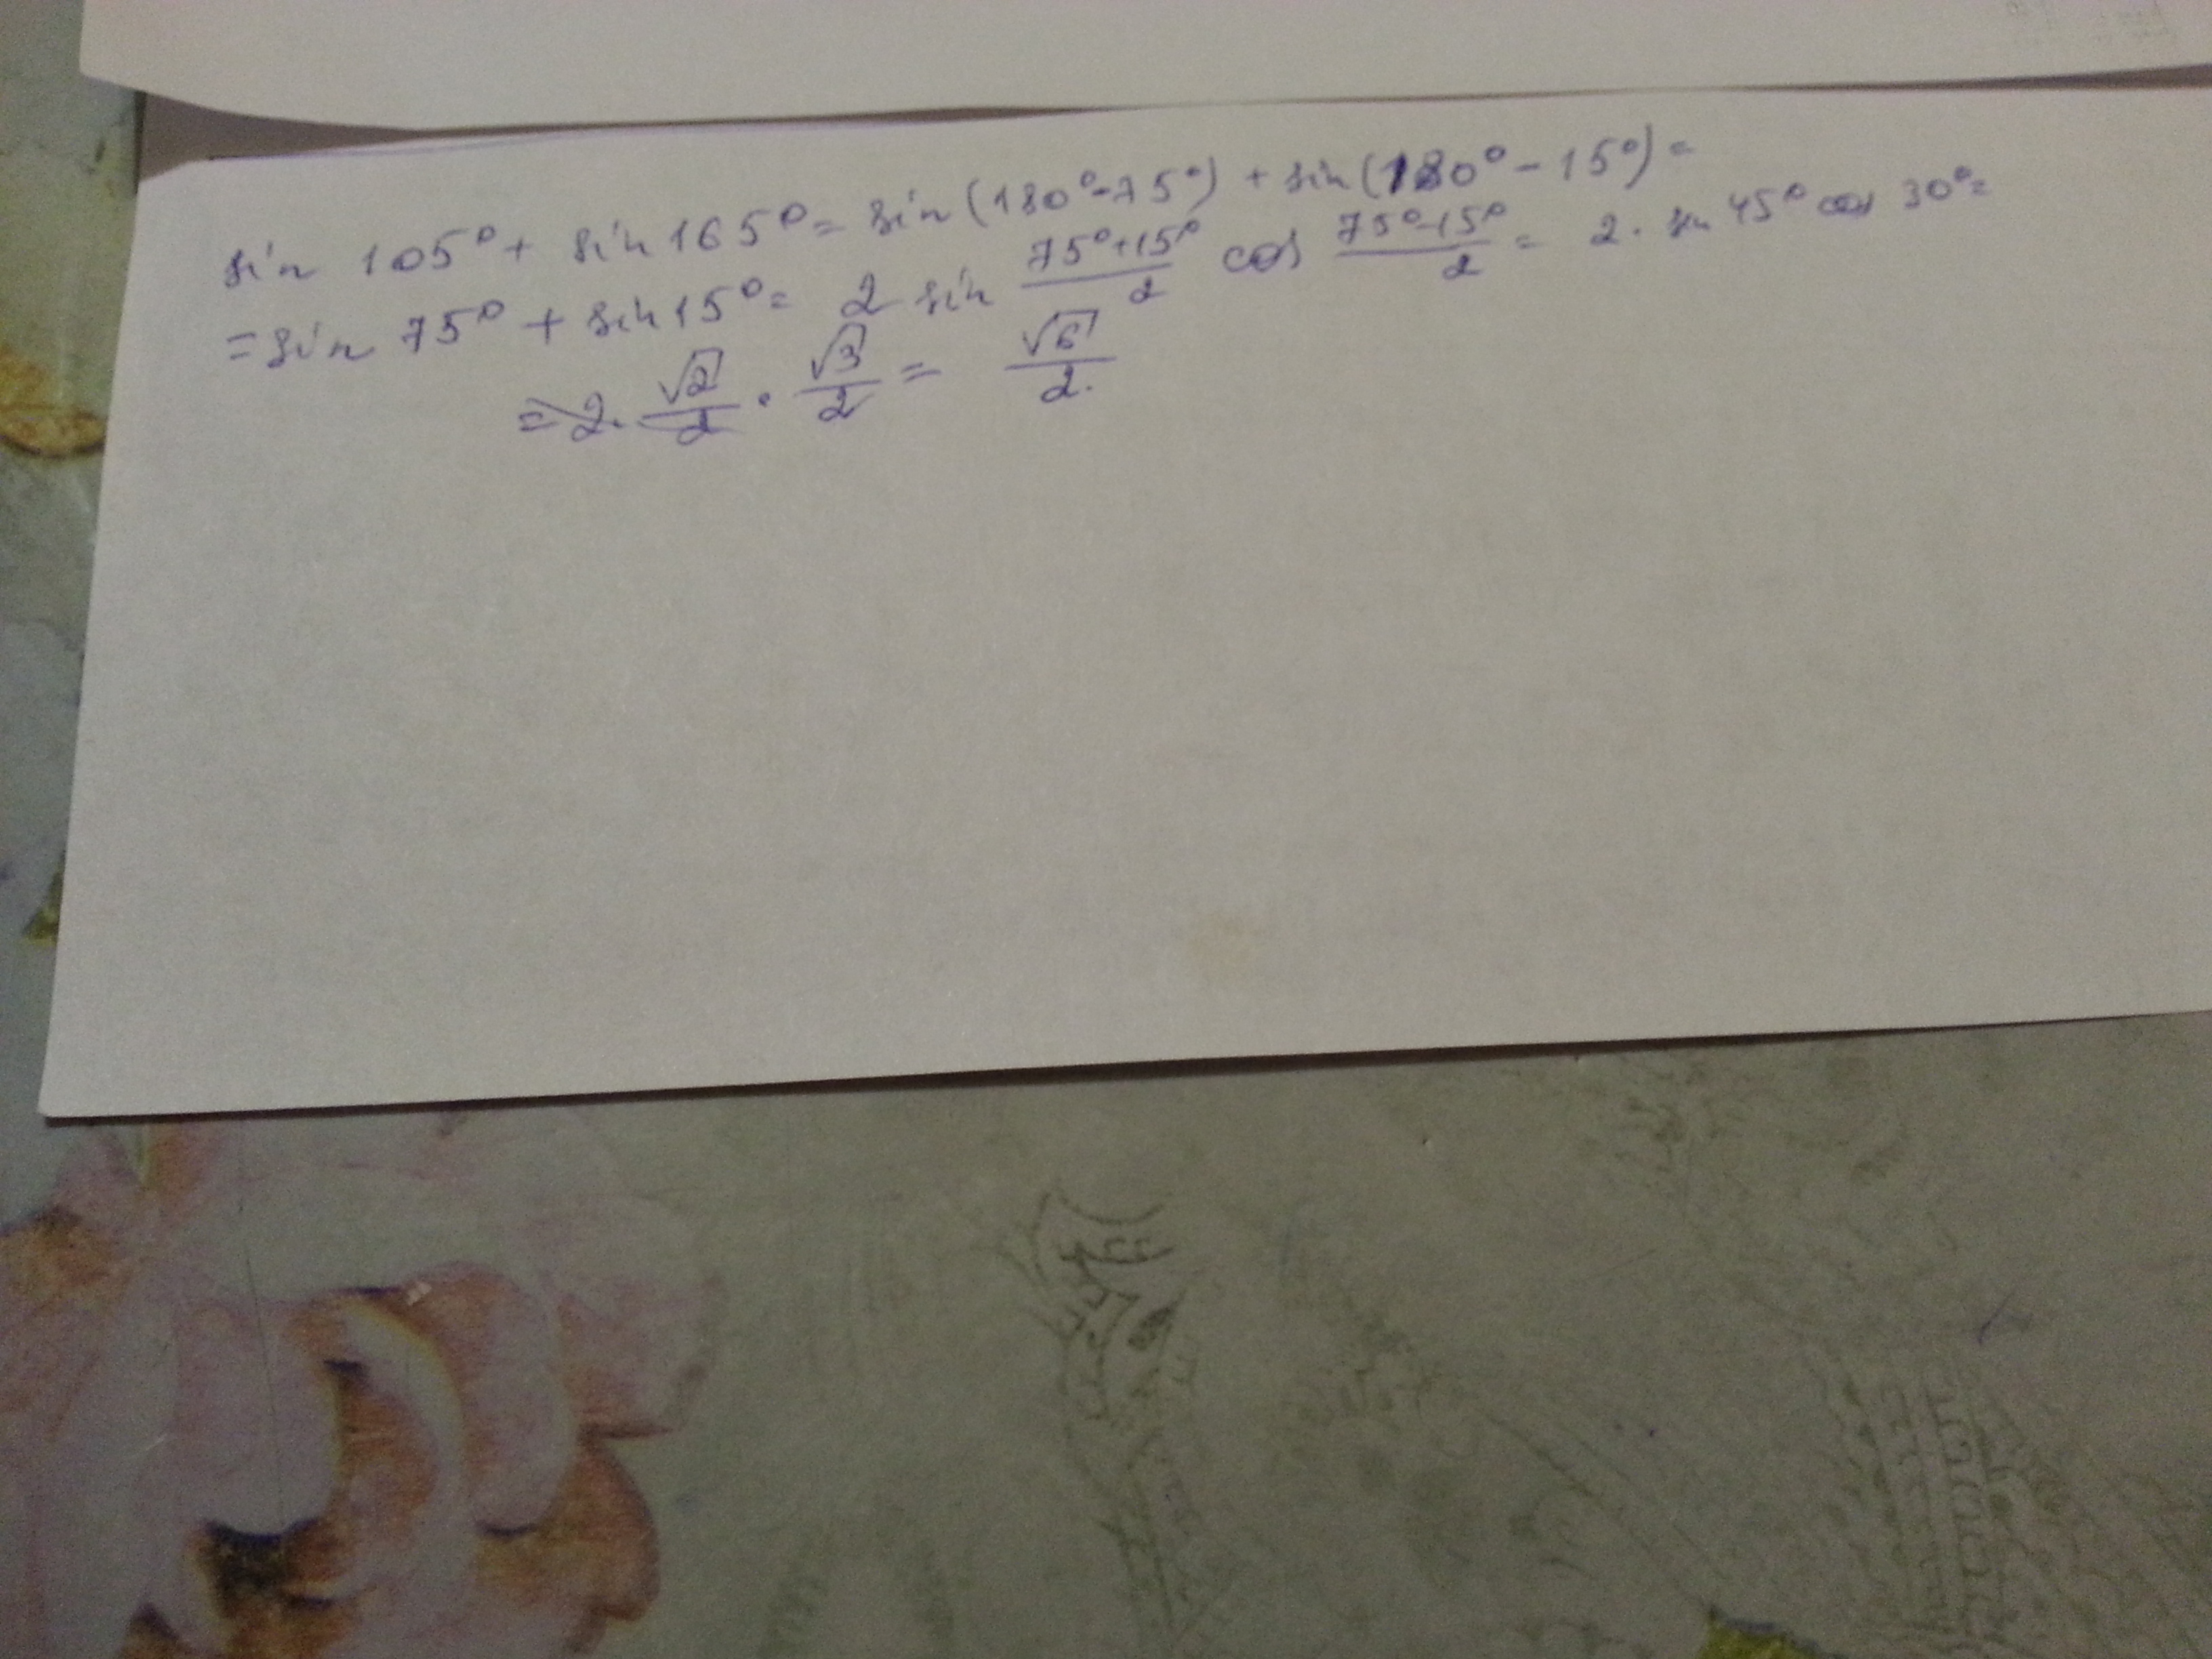 sin 105° + sin 165° = sin(180°-75°) + sin(180°-15°) =
= sin 75° + sin 15° = 2 sin \frac{75°+15°}{2} cos \frac{75°-15°}{2} = 2 · sin 45° cos 30° =
= 2 · \frac{√2}{2} · \frac{√3}{2} = \frac{√6}{2}.